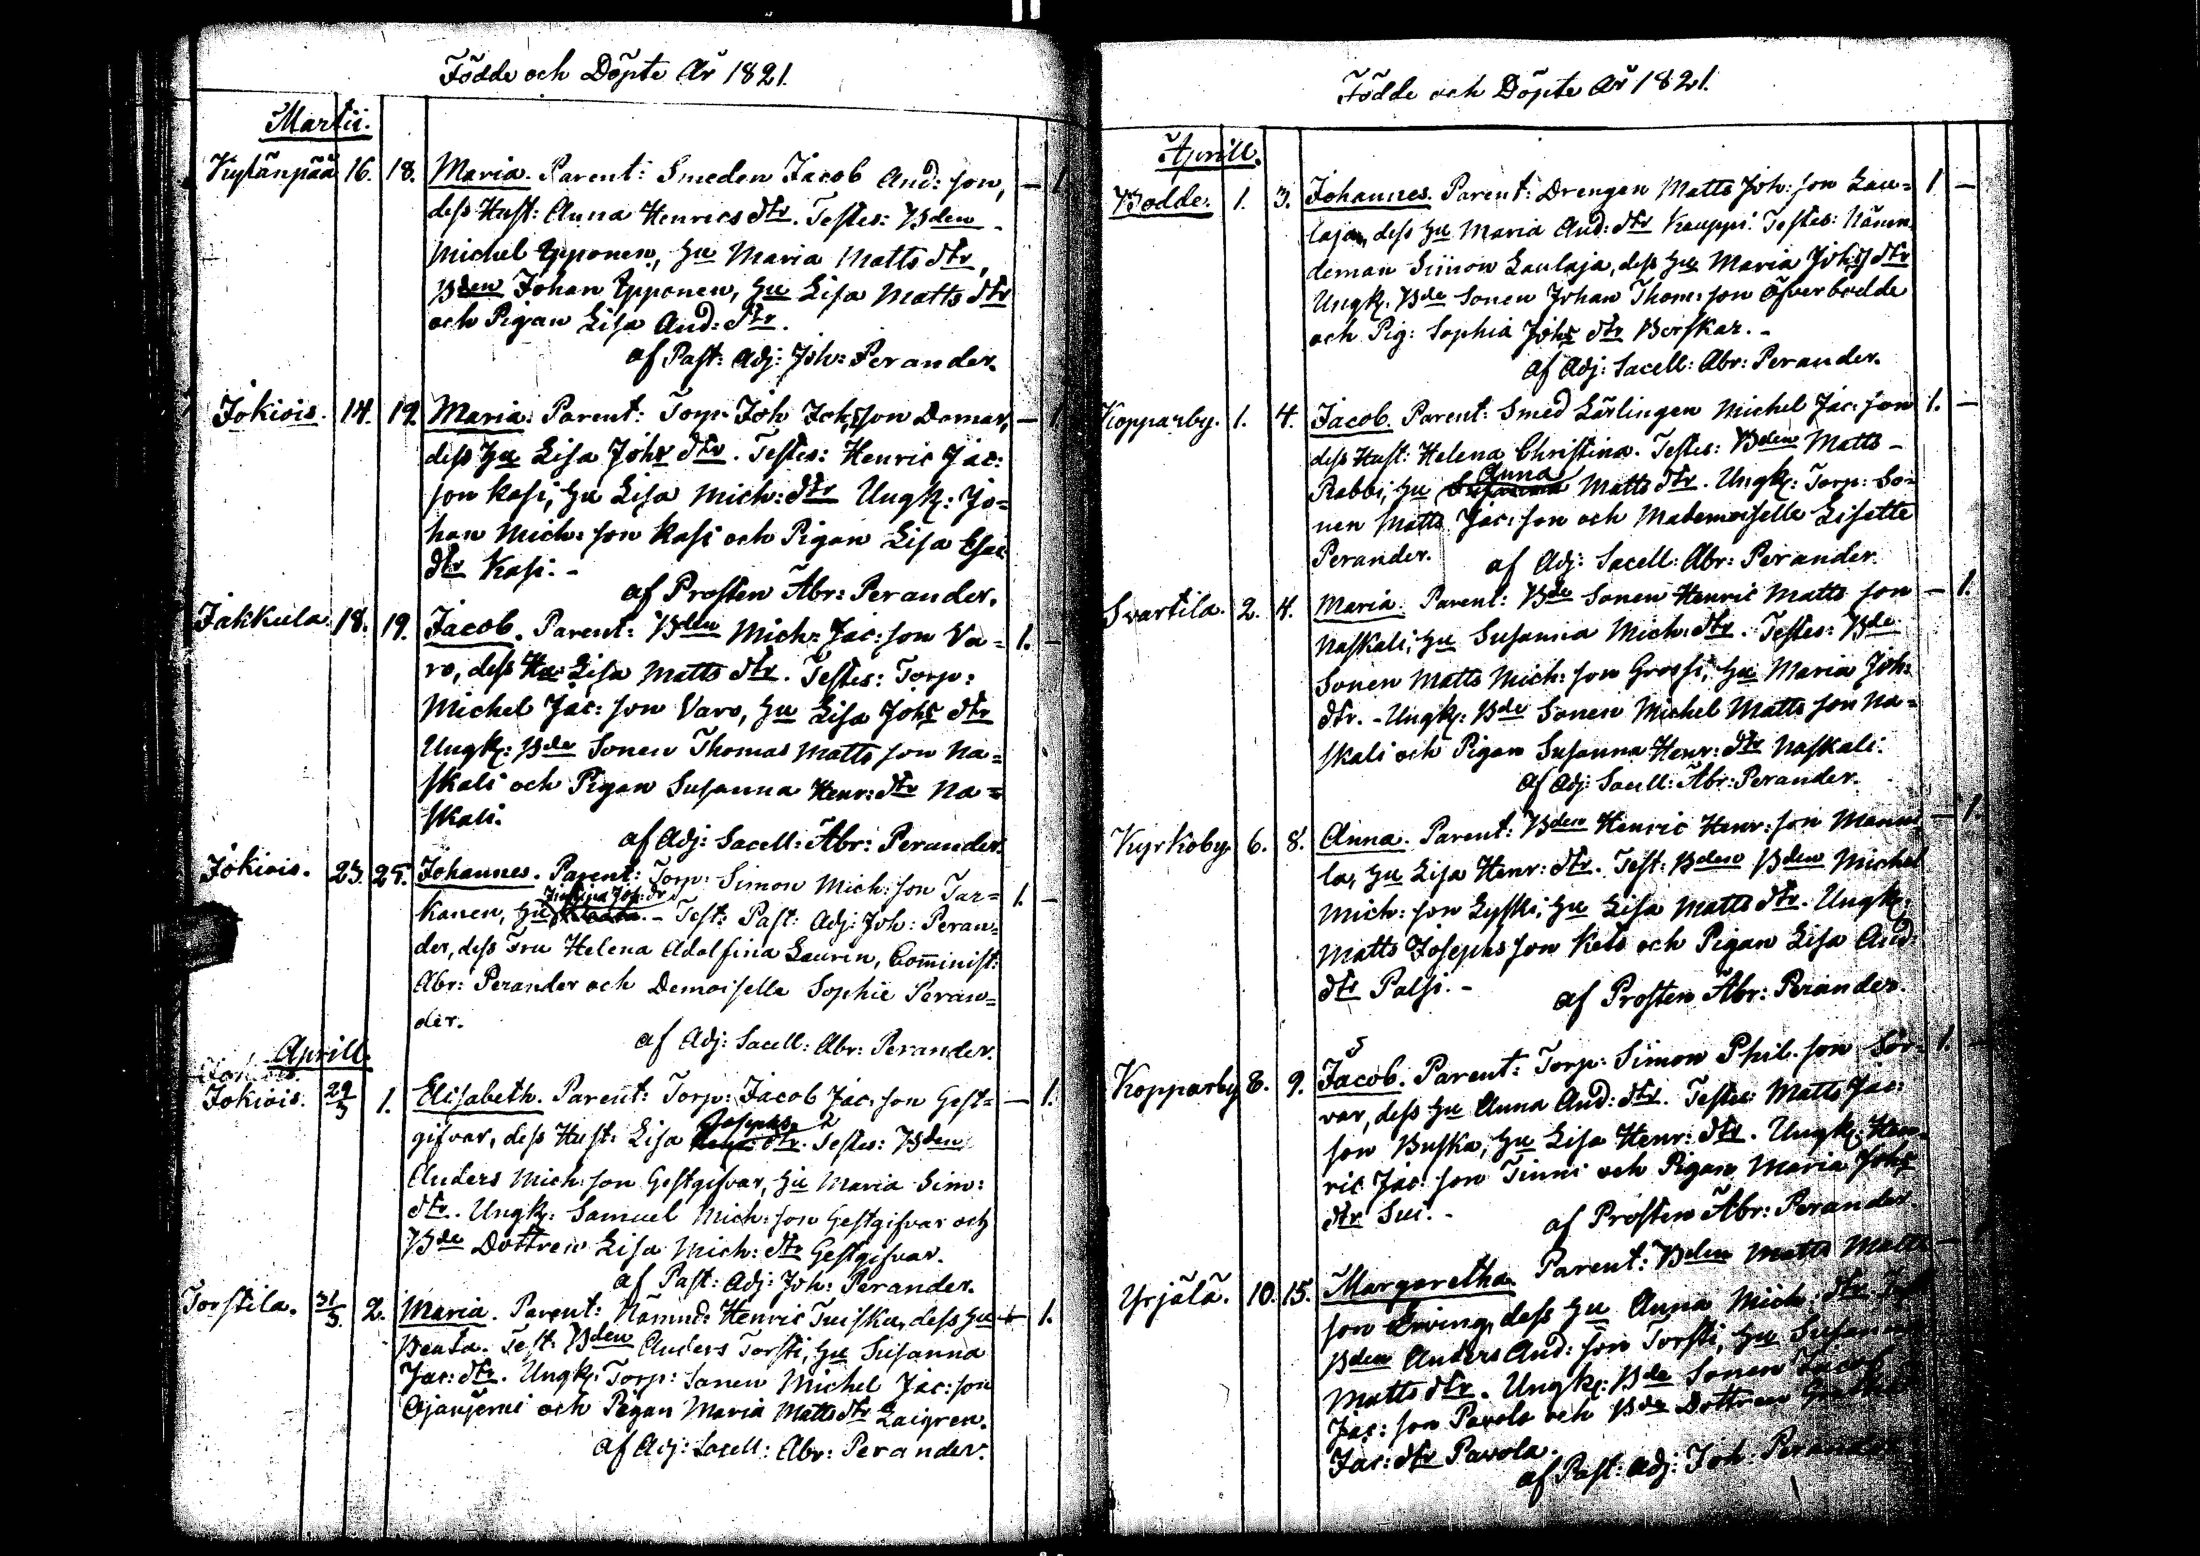 Födde och Döpte År 1821.
Martii.
Kylänpää 16. 18. Maria. Parent: Smeden Jacob And: son, — 1
dess Hust: Anna Henrics dtr. Testes: Bden
Michel Epponen, Hu Maria Matts dtr,
Bden Johan Epponen, Hu Lisa Matts dtr
och Pigan Lisa And: dtr.
af Past: Adj: Joh: Perander.
Jokiois. 14. 19. Maria. Parent: Torp: Joh Johsson Domar, — 1
dess Hu Lisa Johs dtr. Testes: Henric Jac:
son Kasi, Hu Lisa Mich: dtr Ungk: Jo=
han Mich: son Kasi och Pigan Lisa Esai
dtr Kasi. -
af Prosten Abr: Perander.
Jakkula. 18. 19. Jacob. Parent: Bden Mich: Jac: son Va= 1. —
ro, dess Hu: Lisa Matts dtr. Testes: Torp:
Michel Jac: son Varo, Hu Lisa Johs dtr
Ungk: Bde Sonen Thomas Matts son Na=
skali och Pigan Susanna Henr: dtr Na=
skali.
af Adj: Sacell: Abr: Perander.
Jokiois. 23. 25. Johannes. Parent: Torp: Simon Mich: son Tar= 1. —
kanen, Hu Joh: dr. - Test: Past: Adj: Joh: Peran=
der, dess Fru Helena Adolfina Laurin, Comminist:
Abr: Perander och Demoiselle Sophie Peran=
der.
af Adj: Sacell: Abr: Perander.
Aprill.
Jokiois. 29/3 1. Elisabeth. Parent: Torp: Jacob Jac: son Gest= — 1.
gifvar, dess Hust: Lisa Josephs dtr. Testes: Bden
Anders Mich: son Gestgifvar, Hu Maria Sim:
dtr. Ungk: Samuel Mich: son Gestgifvar och
Bde Dottren Lisa Mich: dtr Gestgifvar.
af Past: Adj: Joh: Perander.
Torstila. 31/3. 2. Maria. Parent: Nämnd: Henric Tuisku, dess Hu — 1.
Beata. Test: Bden Anders Torsti, Hu Susanna
Jac: dtr. Ungk: Torp: Sonen Michel Jac: son
Ojanjerni och Pigan Maria Matts dtr Laigren.
af Adj: Sacell: Abr: Perander.
Födde och Döpte År 1821.
Aprill.
Bodde. 1. 3. Johannes. Parent: Drengen Matts Joh: son Lau= 1 —
laja, dess Hu Maria And: dtr Kauppi. Testes: Nämn
deman Simon Laulaja, dess Hu Maria Johs dtr
Ungk: Bde Sonen Johan Thom: son Öfverbodde
och Pig: Sophia Johs dtr Borskar. -
af Adj: Sacell: Abr: Perander.
Kopparby. 1. 4. Jacob. Parent: Smed Lärlingen Michel Jac: son 1. —
dess Hust: Helena Christina. Testes: Bden Matts
Rabbi, Hu Anna Matts dtr. Ungk: Torp: So=
nen Matts Jac: son och Mademoiselle Lisette
Perander. af Adj: Sacell: Abr: Perander.
Svartila. 2. 4. Maria. Parent: Bde Sonen Henric Matts son — 1.
Naskali, Hu Susanna Mich: dtr. Testes: Bde
Sonen Matts Mich: son Grossi, Hu Maria Joh:
dtr. - Ungk: Bde Sonen Michel Matts son Na=
skali och Pigan Susanna Henr: dtr Naskali.
af Adj: Sacell: Abr: Perander.
Kyrkoby 6. 8. Anna. Parent: Bden Henric Henr: son Manni — 1.
la, Hu Lisa Henr: dtr. Test: Bden Bden Michel
Mich: son Lyski, Hu Lisa Matts dtr. Ungk:
Matts Josephs son Keto och Pigan Lisa And:
dtr Palsi. -
af Prosten Abr: Perander.
Kopparby 8. 9. Jacob. Parent: Torp: Simon Phil: son Sör= 1. —
var, dess Hu Anna And: dtr. Testes: Matts Jac:
son Buska, Hu Lisa Henr: dtr. Ungk: Hen=
ric Jac: son Tinni och Pigan Maria Johs
dtr Sui. -
af Prosten Abr: Perander.
Yrjälä. 10. 15. Margaretha. Parent: Bden Matts Matts —
son Erving, dess Hu Anna Mich: dtr.
Bden Anders And: son Torsti, Hu Susanna
Matts dtr. Ungk: Bde Sonen Jacob
Jac: son Pavola och Bde Dottren
Jac: dtr Pavola.
af Past: Adj: Joh: Perander